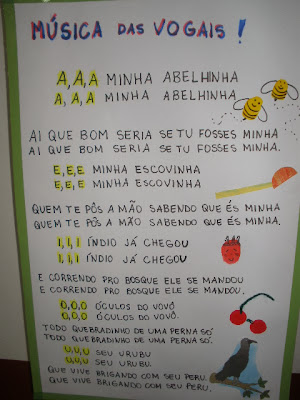 MÚSICA DAS VOGAIS !
A,A,A MINHA ABELHINHA
A,A,A MINHA ABELHINHA
AI QUE BOM SERIA SE TU FOSSES MINHA
AI QUE BOM SERIA SE TU FOSSES MINHA.
E,E,E MINHA ESCOVINHA
E,E,E MINHA ESCOVINHA
QUEM TE PÔS A MÃO SABENDO QUE ÉS MINHA
QUEM TE PÔS A MÃO SABENDO QUE ÉS MINHA.
I,I,I ÍNDIO JÁ CHEGOU
I,I,I ÍNDIO JÁ CHEGOU
E CORRENDO PRO BOSQUE ELE SE MANDOU
E CORRENDO PRO BOSQUE ELE SE MANDOU.
O,O,O ÓCULOS DO VOVÔ
O,O,O ÓCULOS DO VOVÔ.
TODO QUEBRADINHO DE UMA PERNA SÓ
TODO QUEBRADINHO DE UMA PERNA SÓ.
U,U,U SEU URUBU
U,U,U SEU URUBU.
QUE VIVE BRIGANDO COM SEU PERU.
QUE VIVE BRIGANDO COM SEU PERU.